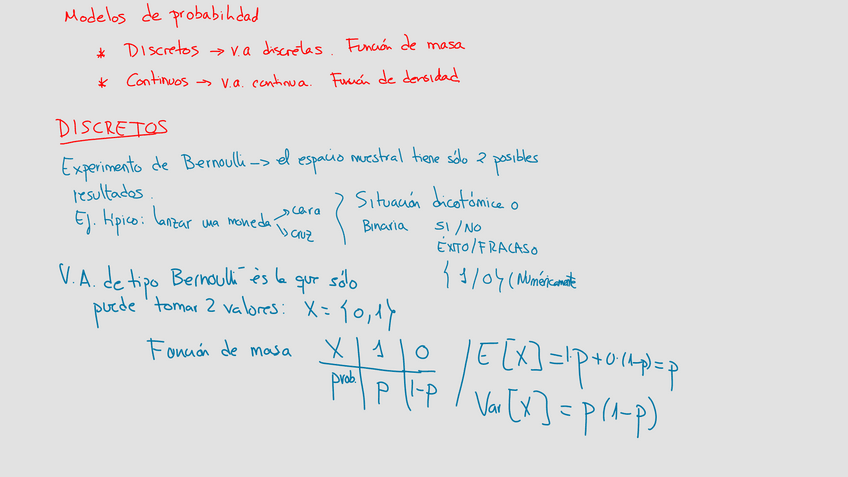 Modelos de probabilidad
* Discretos → v.a discretas. Función de masa
* Continuos → v.a. continua. Función de densidad
DISCRETOS
Experimento de Bernoulli → el espacio muestral tiene sólo 2 posibles
resultados.
Ej. típico: lanzar una moneda → cara
→ cruz
Situación dicotómica o
Binaria SI/NO
ÉXITO/FRACASO
{1/0} (Numéricamente
V.A. de tipo Bernoulli es la que sólo
puede tomar 2 valores: X = {0,1}
Función de masa
X | 1 | 0
prob. | p | 1-p
E[X] = 1·p + 0·(1-p) = p
Var[X] = p(1-p)